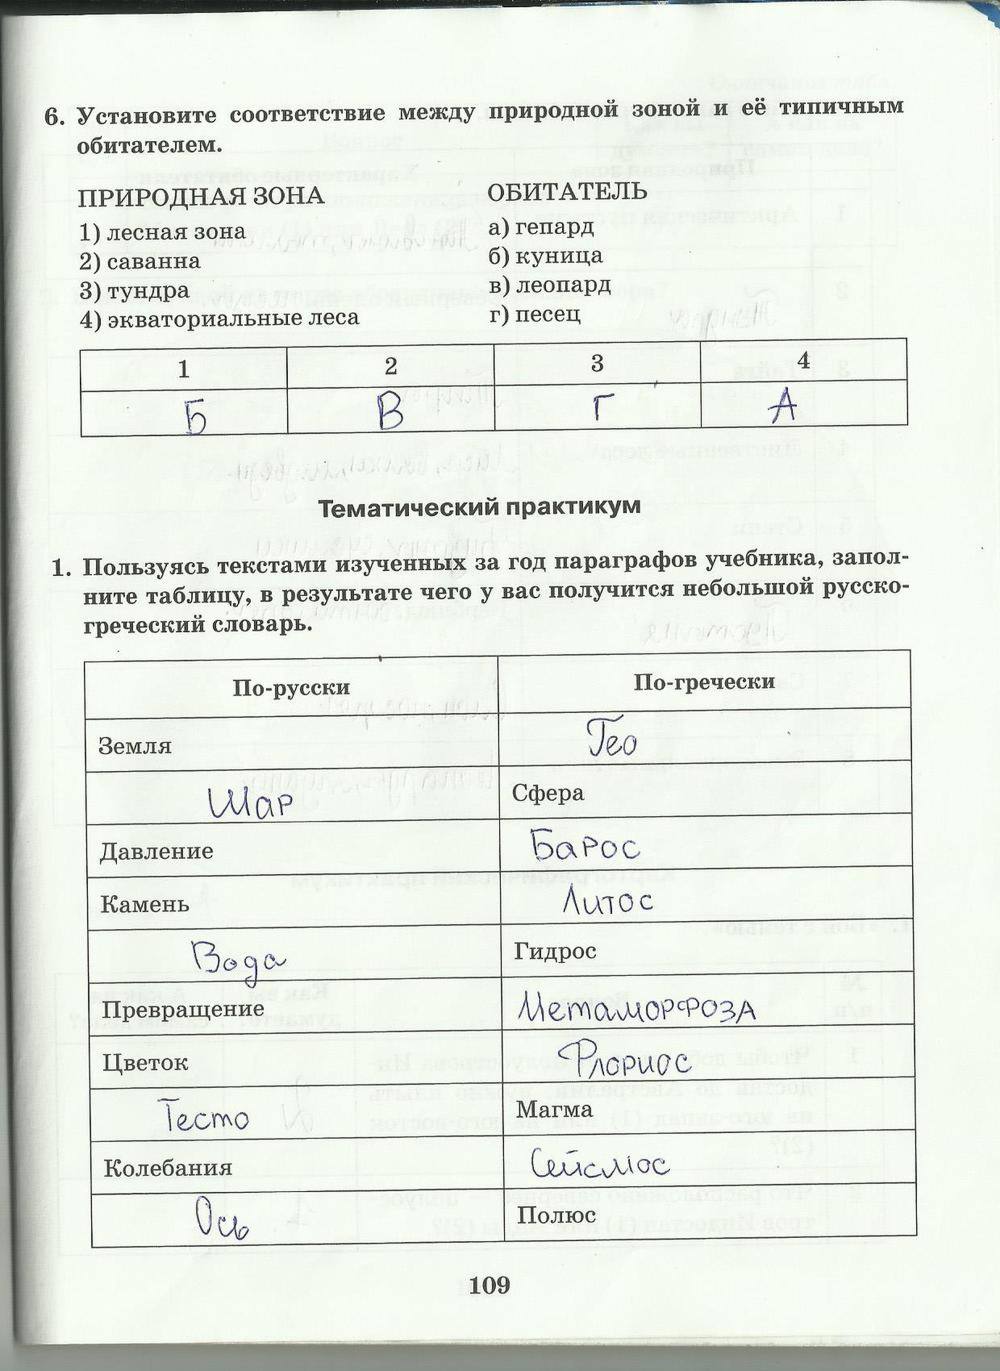 6. Установите соответствие между природной зоной и её типичным
обитателем.
ПРИРОДНАЯ ЗОНА
1) лесная зона
2) саванна
3) тундра
4) экваториальные леса
ОБИТАТЕЛЬ
а) гепард
б) куница
в) леопард
г) песец
1 2 3 4
Б В Г А
Тематический практикум
1. Пользуясь текстами изученных за год параграфов учебника, запол-
ните таблицу, в результате чего у вас получится небольшой русско-
греческий словарь.
По-русски По-гречески
Земля Гео
Шар Сфера
Давление Барос
Камень Литос
Вода Гидрос
Превращение Метаморфоза
Цветок Флориос
Тесто Магма
Колебания Сейсмос
Ось Полюс
109